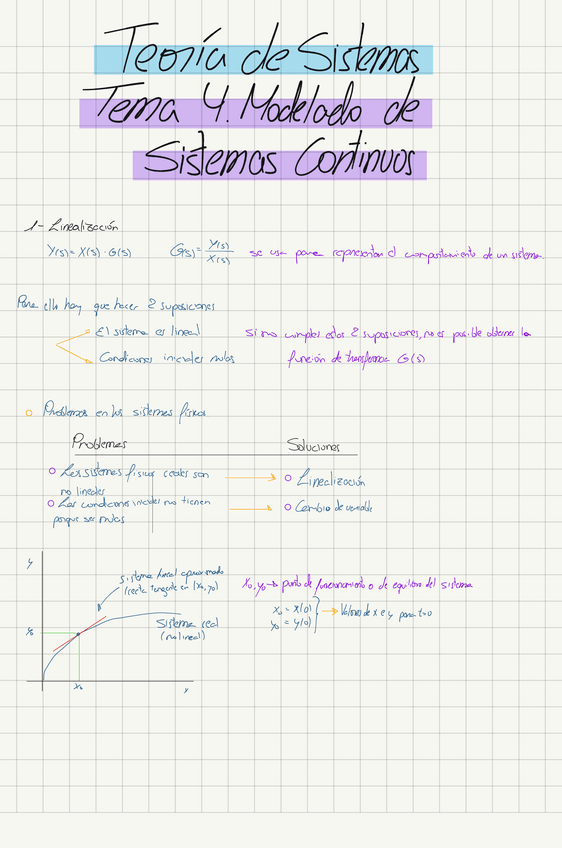 Teoría de Sistemas
Tema 4. Modelado de
Sistemas Continuos
1- Linealización
Y(s) = X(s) · G(s)
G(s) = Y(s) / X(s)
se usa para representar el comportamiento de un sistema.
Para ello hay que hacer 2 suposiciones
El sistema es lineal
Condiciones iniciales nulas
Si no cumples estas 2 suposiciones, no es posible obtener la
función de transferencia G(s)
Problemas en los sistemas físicos
Problemas
Soluciones
Los sistemas físicos reales son
no lineales
Linealización
Las condiciones iniciales no tienen
porque ser nulas
Cambio de variable
y
Sistema lineal aproximado
(recta tangente en (x₀, y₀)
y₀
Sistema real
(no lineal)
x₀
x₀, y₀ → punto de funcionamiento o de equilibrio del sistema
x₀ = x(0)
y₀ = y(0)
→ Valores de x e y para t=0